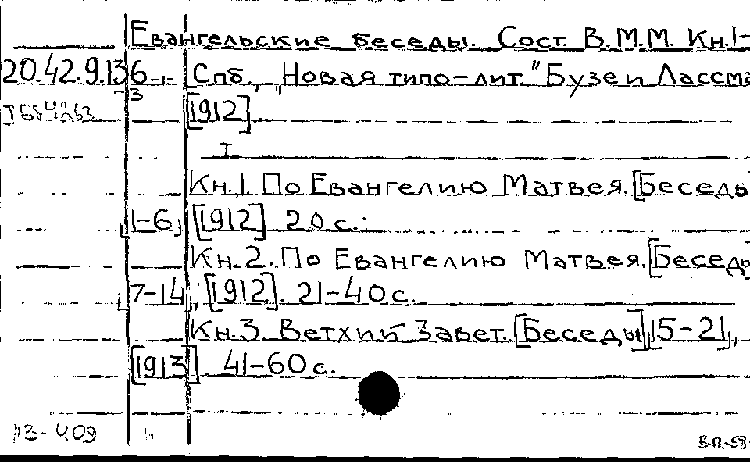 Евангельские беседы. Сост. В.М.М. Кн.1-
20.42.9.136 Спб., „Новая типо-лит." Бузе и Лассма
3
[1912]
I
Кн.1. По Евангелию Матвея. [Беседы
1-6] [1912] 20 с.
Кн.2. По Евангелию Матвея. [Беседы
7-14], [1912]. 21-40 с.
Кн.3. Ветхий Завет. [Беседы] 15-21],
[1913] 41-60 с.
13-409